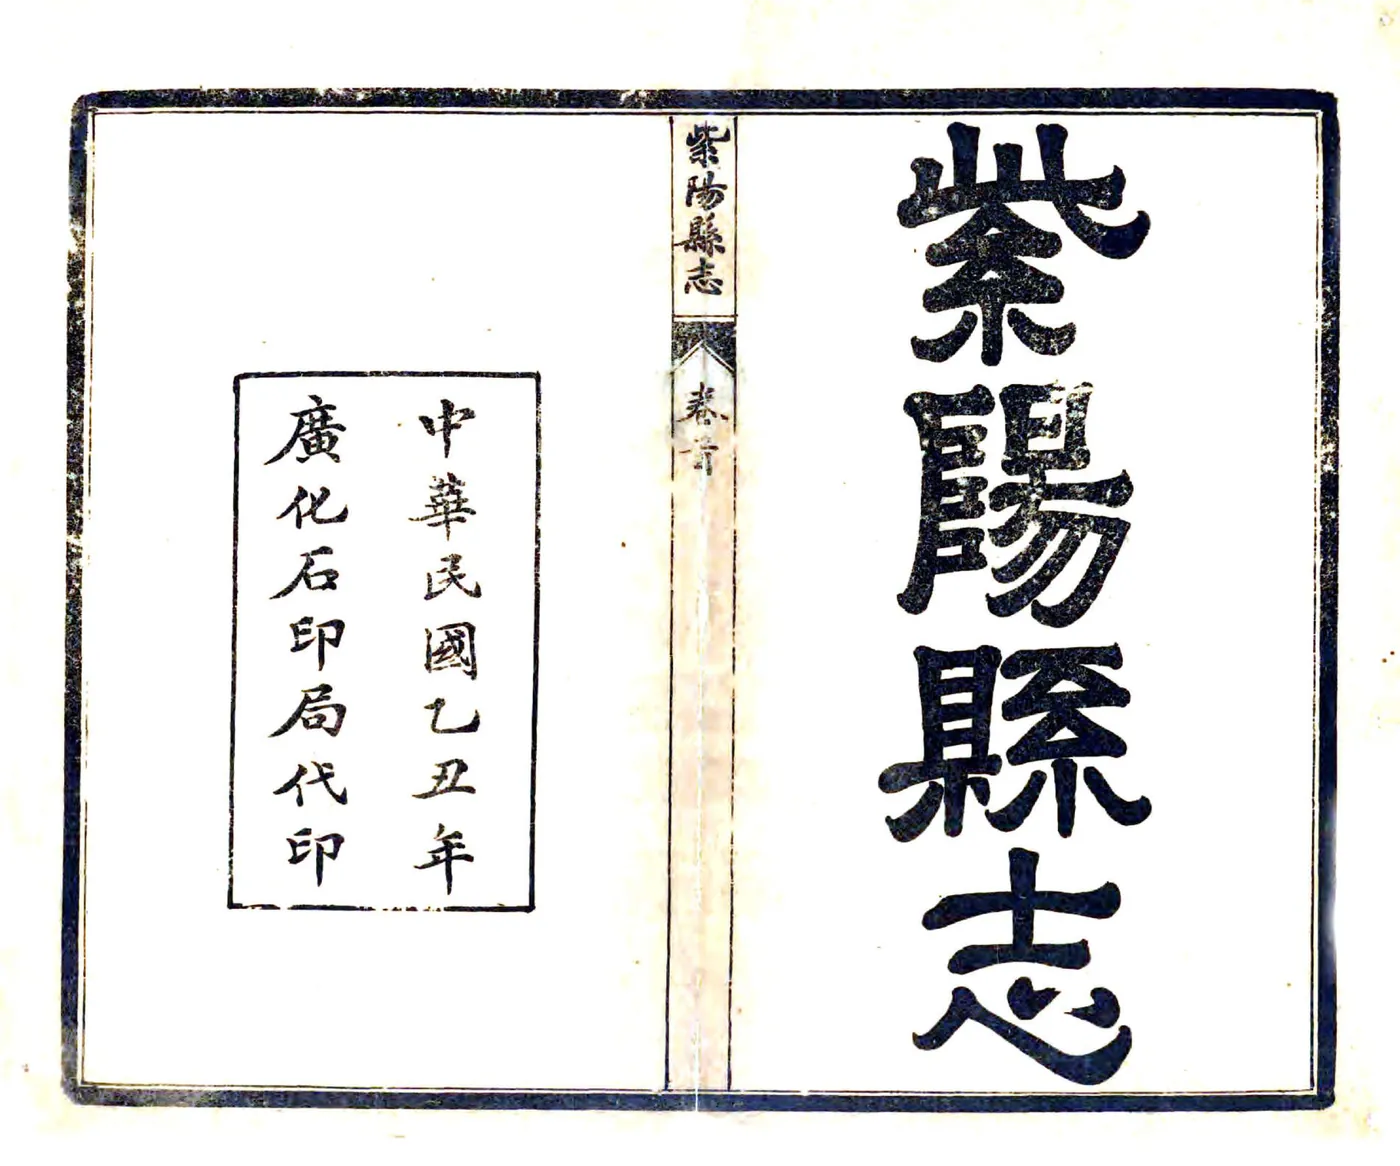 紫陽縣志
紫陽縣志
卷首
中華民國乙丑年
廣化石印局代印